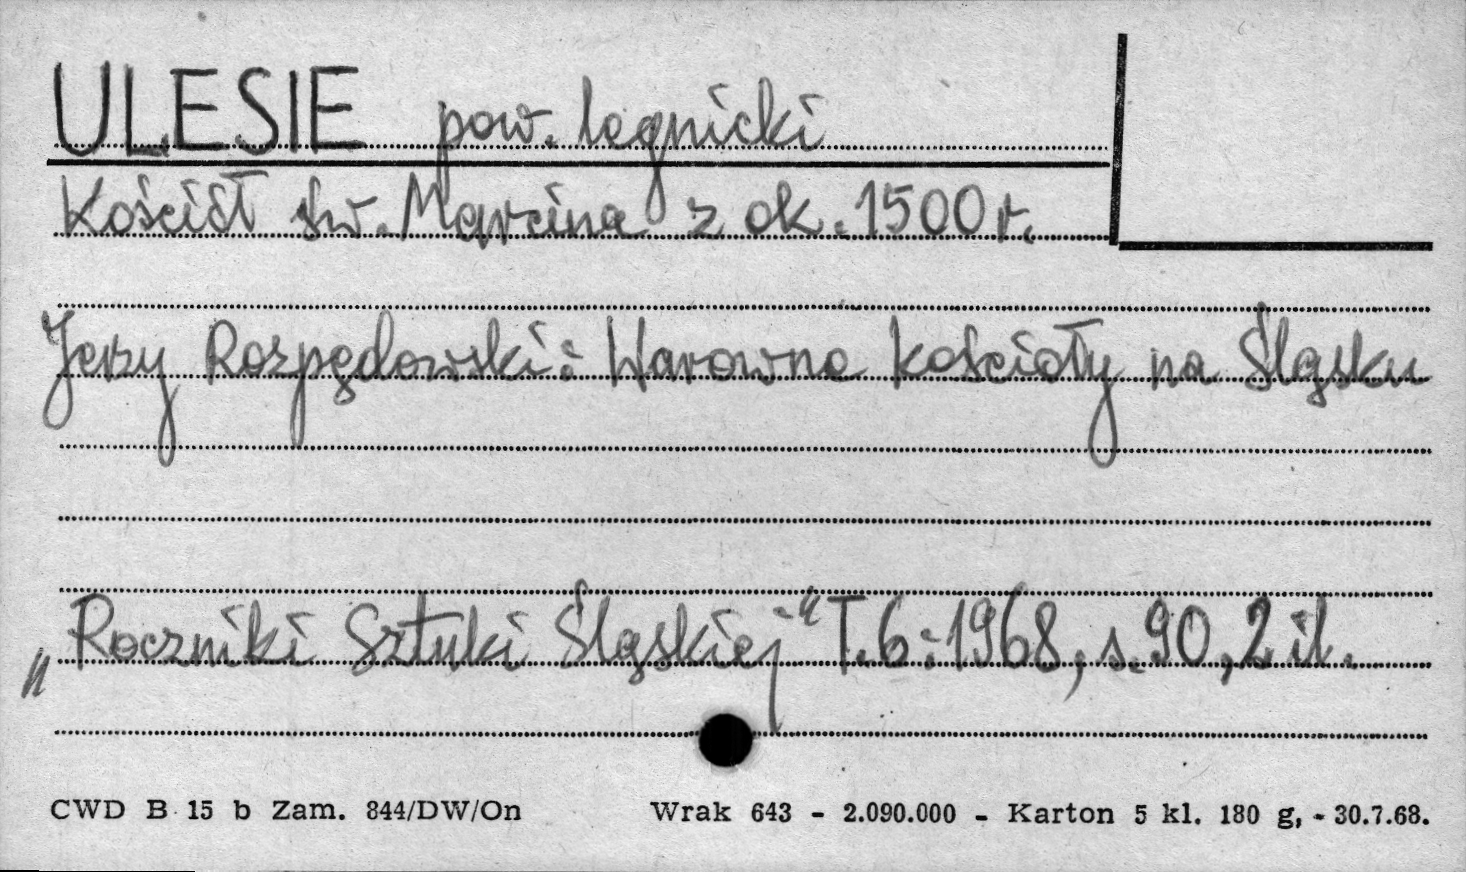 ULESIE pow. legnicki
Kościół św. Marcina z ok. 1500 r.
Jerzy Rozpędowski: Warowne kościoły na Śląsku
„Roczniki Sztuki Śląskiej" T. 6: 1968, s. 90, 2 il.
CWD B 15 b Zam. 844/DW/On Wrak 643 - 2.090.000 - Karton 5 kl. 180 g, - 30.7.68.